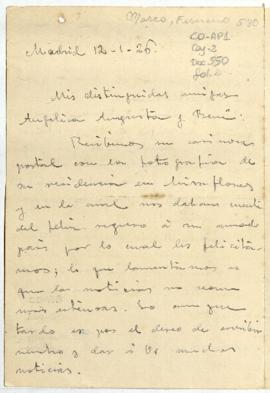 Marco, Federico 550
CO-AP1
Caj-2
Doc 550
fol. 1
Madrid 12-1-26.
Mis distinguidas amigas
Angelica Augusta y René:
Recibimos su cariñosa
postal con la fotografia de
su residencia en Miraflores
y en la cual nos daban cuenta
del feliz regreso á su amado
pais por lo cual les felicitá-
mos; lo que lamentámos es
que las noticias no sean
mas extensas. Lo aunque
tardo es por el deseo de escribir
y dar á Vs muchas
noticias.